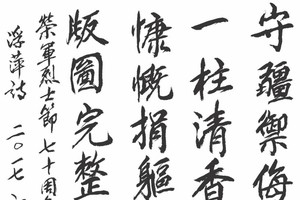 守疆禦侮
一柱清香
慷慨捐軀
版圖完整
榮軍烈士節七十周年
浮萍詩 二〇一七